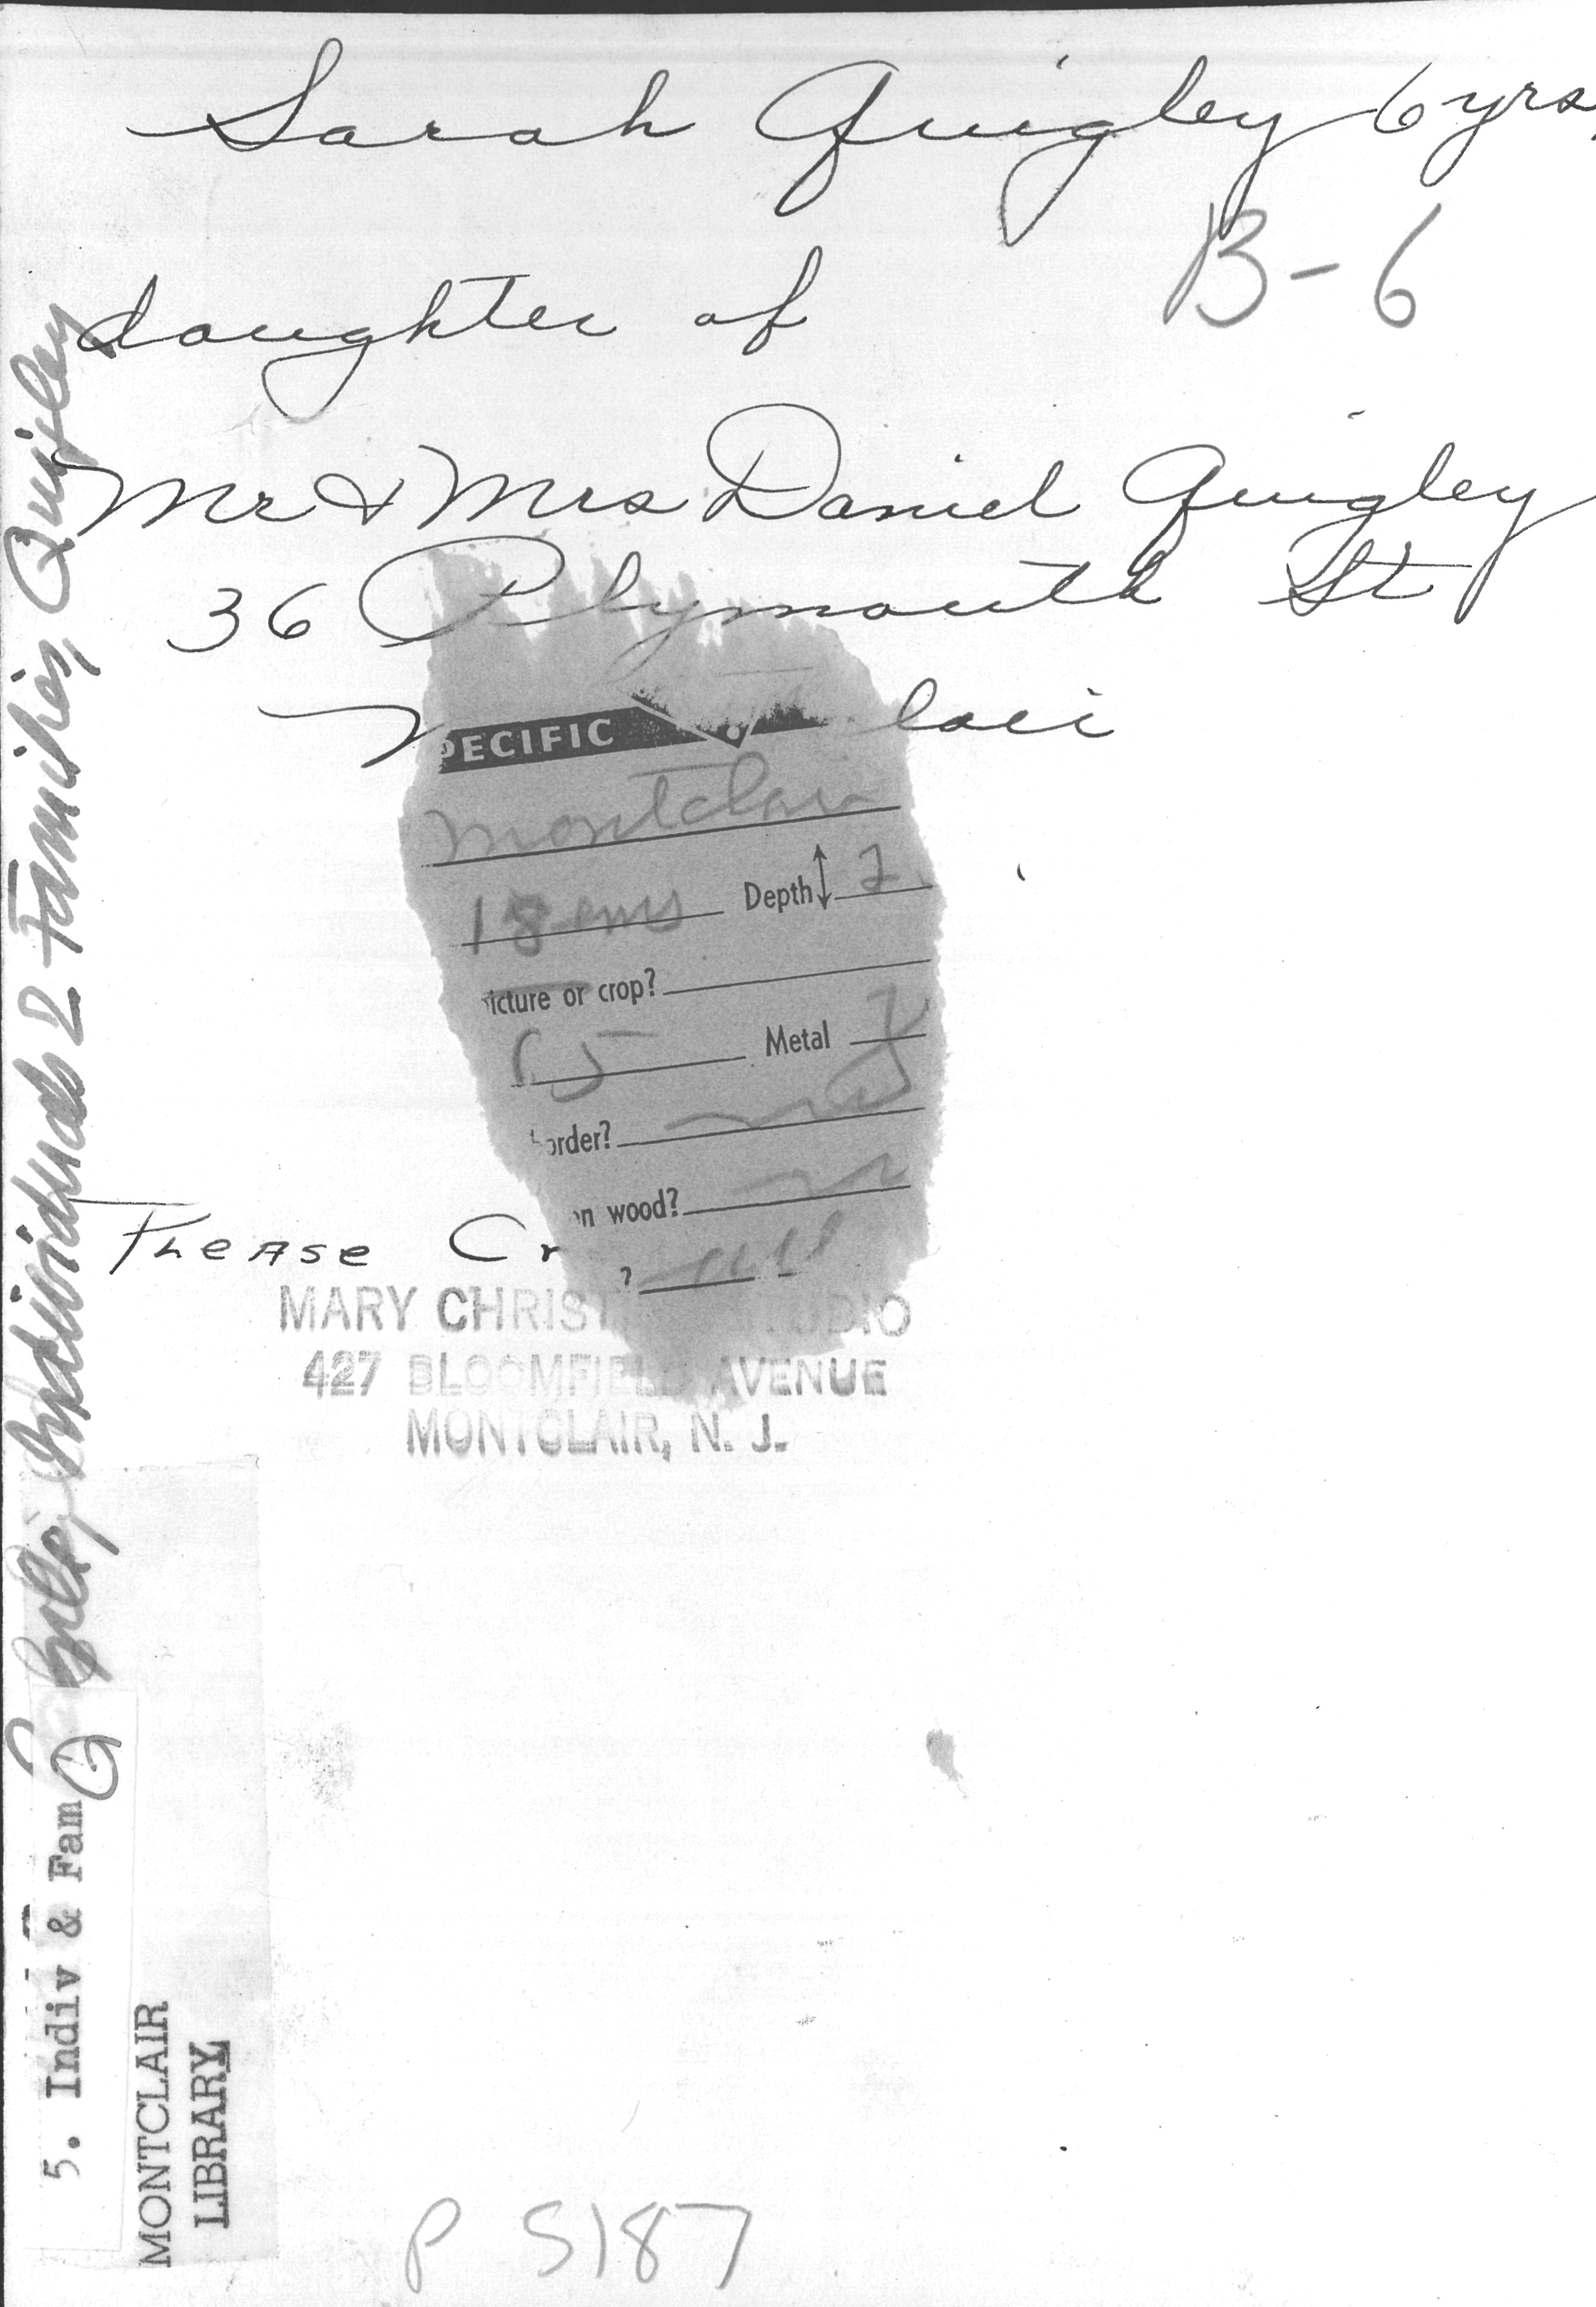 Sarah Quigley 6 yrs.
B-6
daughter of
Mr & Mrs Daniel Quigley
36 Plymouth St
M lair
PECIFIC
Montclair
18 ems Depth 2
icture or crop?
65 Metal
order?
on wood?
?
Please Cr
MARY CHRIST TUDIO
427 BLOOMFIELD AVENUE
MONTCLAIR, N. J.
Individuals & Families, Quigley
5. Indiv & Fam Q
MONTCLAIR
LIBRARY
P 5187